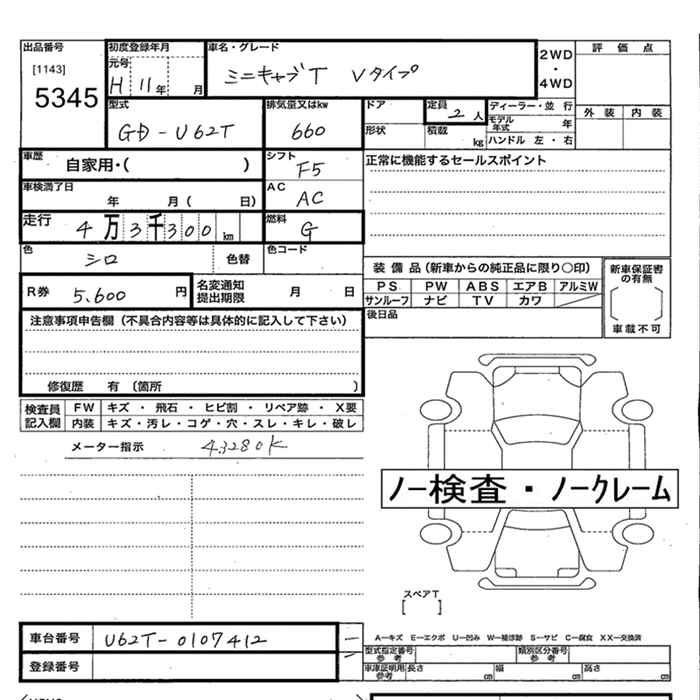 出品番号 初度登録年月 車名・グレード 2WD 評価点
[1143] 元号 ミニキャブT Vタイプ ・
5345 H 11年 月 4WD
型式 排気量又はkw ドア 定員 2人 ディーラー・並行 外装 内装
GD-U62T 660 形状 積載 kg モデル年式 年
ハンドル 左・右
車歴 自家用・( ) シフト F5 正常に機能するセールスポイント
車検満了日 年 月( 日) AC AC
走行 4万3千300km 燃料 G
色 シロ 色替 色コード
装備品(新車からの純正品に限り○印) 新車保証書の有無
R券 5.600円 名変通知提出期限 月 日 PS PW ABS エアB アルミW
サンルーフ ナビ TV カワ
注意事項申告欄(不具合内容等は具体的に記入して下さい) 後日品 車載不可
修復歴 有〔箇所 〕
検査員記入欄 FW キズ・飛石・ヒビ割・リペア跡・X要
内装 キズ・汚レ・コゲ・穴・スレ・キレ・破レ
メーター指示 43280K
ノー検査・ノークレーム
スペアT
[ ]
車台番号 U62T-0107412
登録番号
A―キズ E―エクボ U―凹み W―補修跡 S―サビ C―腐食 XX―交換済
型式指定番号 参考 類別区分番号 参考
車庫証明用 参考 長さ cm 幅 cm 高さ cm